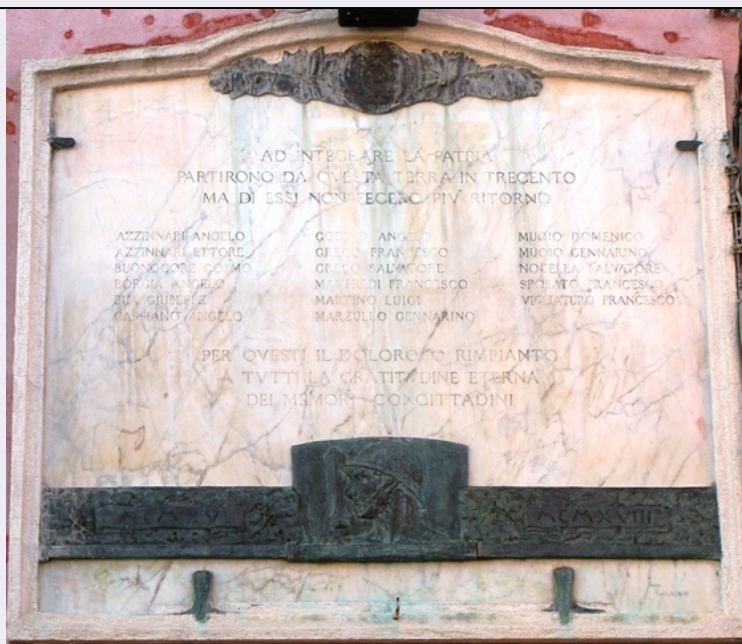 AD INTEGRARE LA PATRIA
PARTIRONO DA QVESTA TERRA IN TRECENTO
MA DI ESSI NON FECERO PIV RITORNO
AZZINNARI ANGELO
AZZINNARI ETTORE
BUONOCORE COSMO
BORGIA ANGELO
BUA GIUSEPPE
CASSIANO ANGELO
GODINO ANGELO
GRECO FRANCESCO
GRECO SALVATORE
MANFREDI FRANCESCO
MARTINO LUIGI
MARZULLO GENNARINO
DOMENICO
GENNARINO
NOCELLA SALVATORE
SPOSATO FRANCESCO
VIGLIATURO FRANCESCO
PER QVESTI IL DOLOROSO RIMPIANTO
A TVTTI LA GRATITUDINE ETERNA
DEI MEMORI CONCITTADINI
MCMXV
MCMXVIII